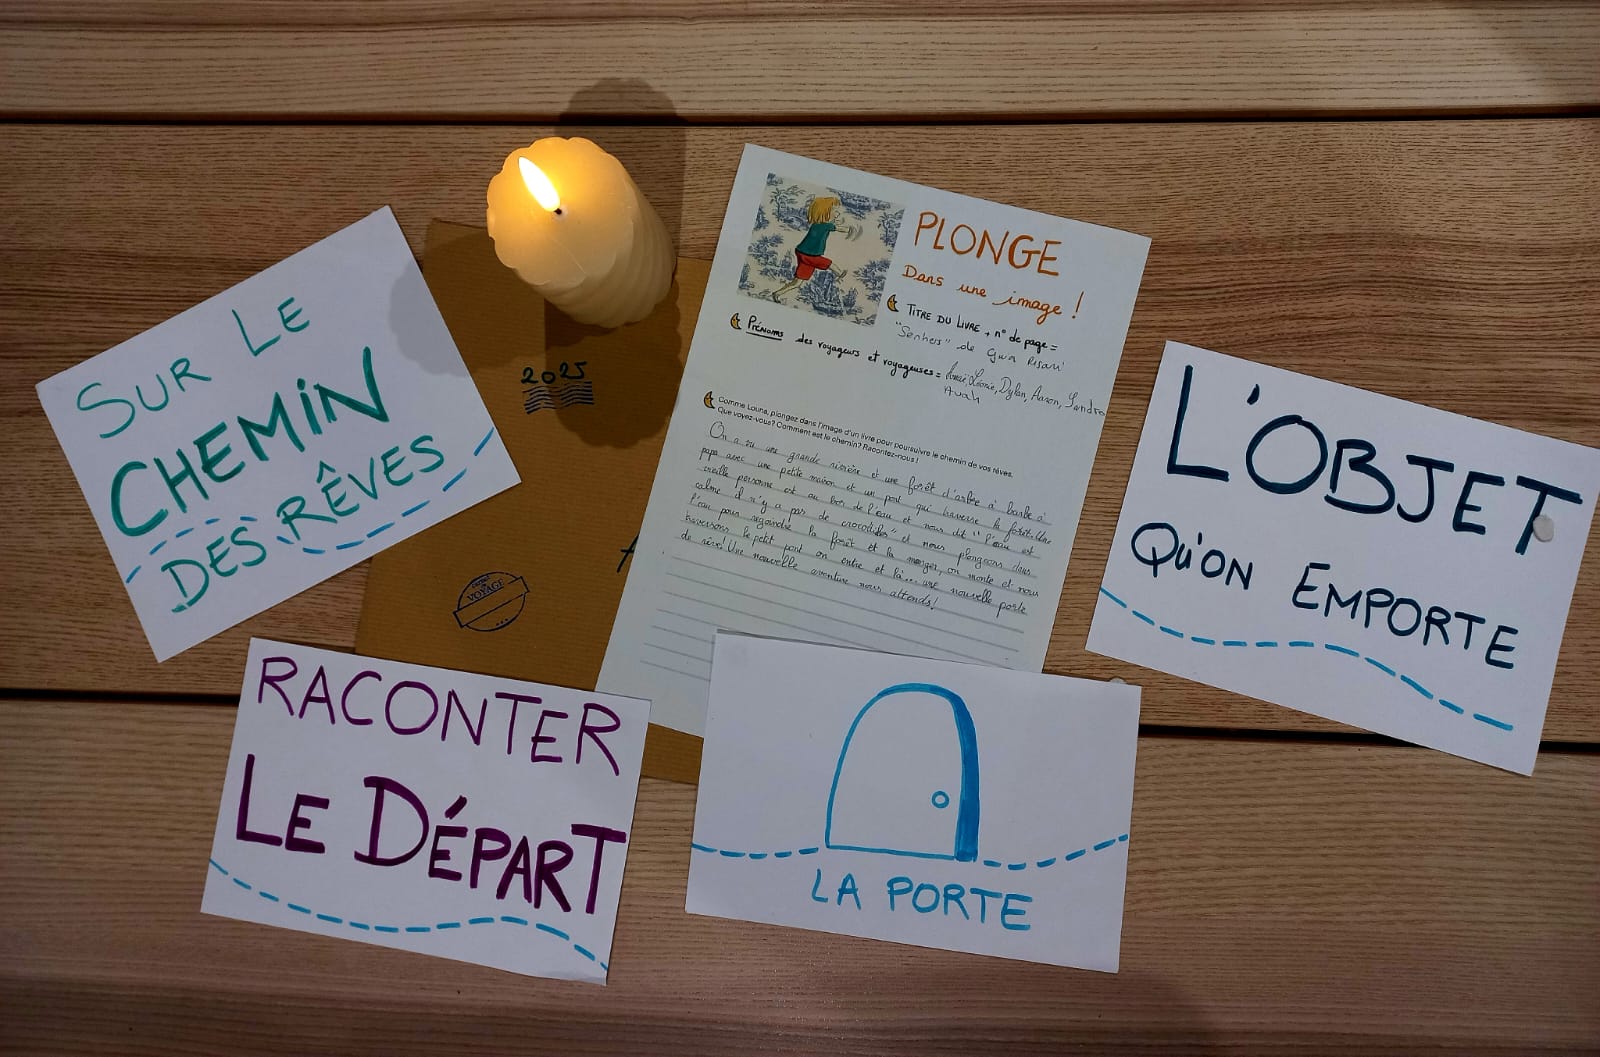 SUR LE
CHEMIN
DES RÊVES
2025
VOYAGE
PLONGE
Dans une image !
TITRE DU LIVRE + n° de page =
"Senhers" de Gwa
Prénoms des voyageurs et voyageuses = Léonie, Dylan, Aaron, Sandro
Avah
Comme Louna, plongez dans l'image d'un livre pour poursuivre le chemin de vos rêves.
Que voyez-vous? Comment est le chemin? Racontez-nous !
On a vu une grande rivière et une forêt d'arbre à barbe à
papa avec une petite maison et un pont qui traverse la forêt. Une
vieille personne est au bord de l'eau et nous dit "l'eau est
calme il n'y a pas de crocodiles" et nous plongeons dans
l'eau pour rejoindre la forêt et la manger, on monte et nous
traversons le petit pont on entre et là... une nouvelle porte
de rêve! Une nouvelle aventure nous attends!
L'OBJET
QU'ON EMPORTE
RACONTER
LE DÉPART
LA PORTE